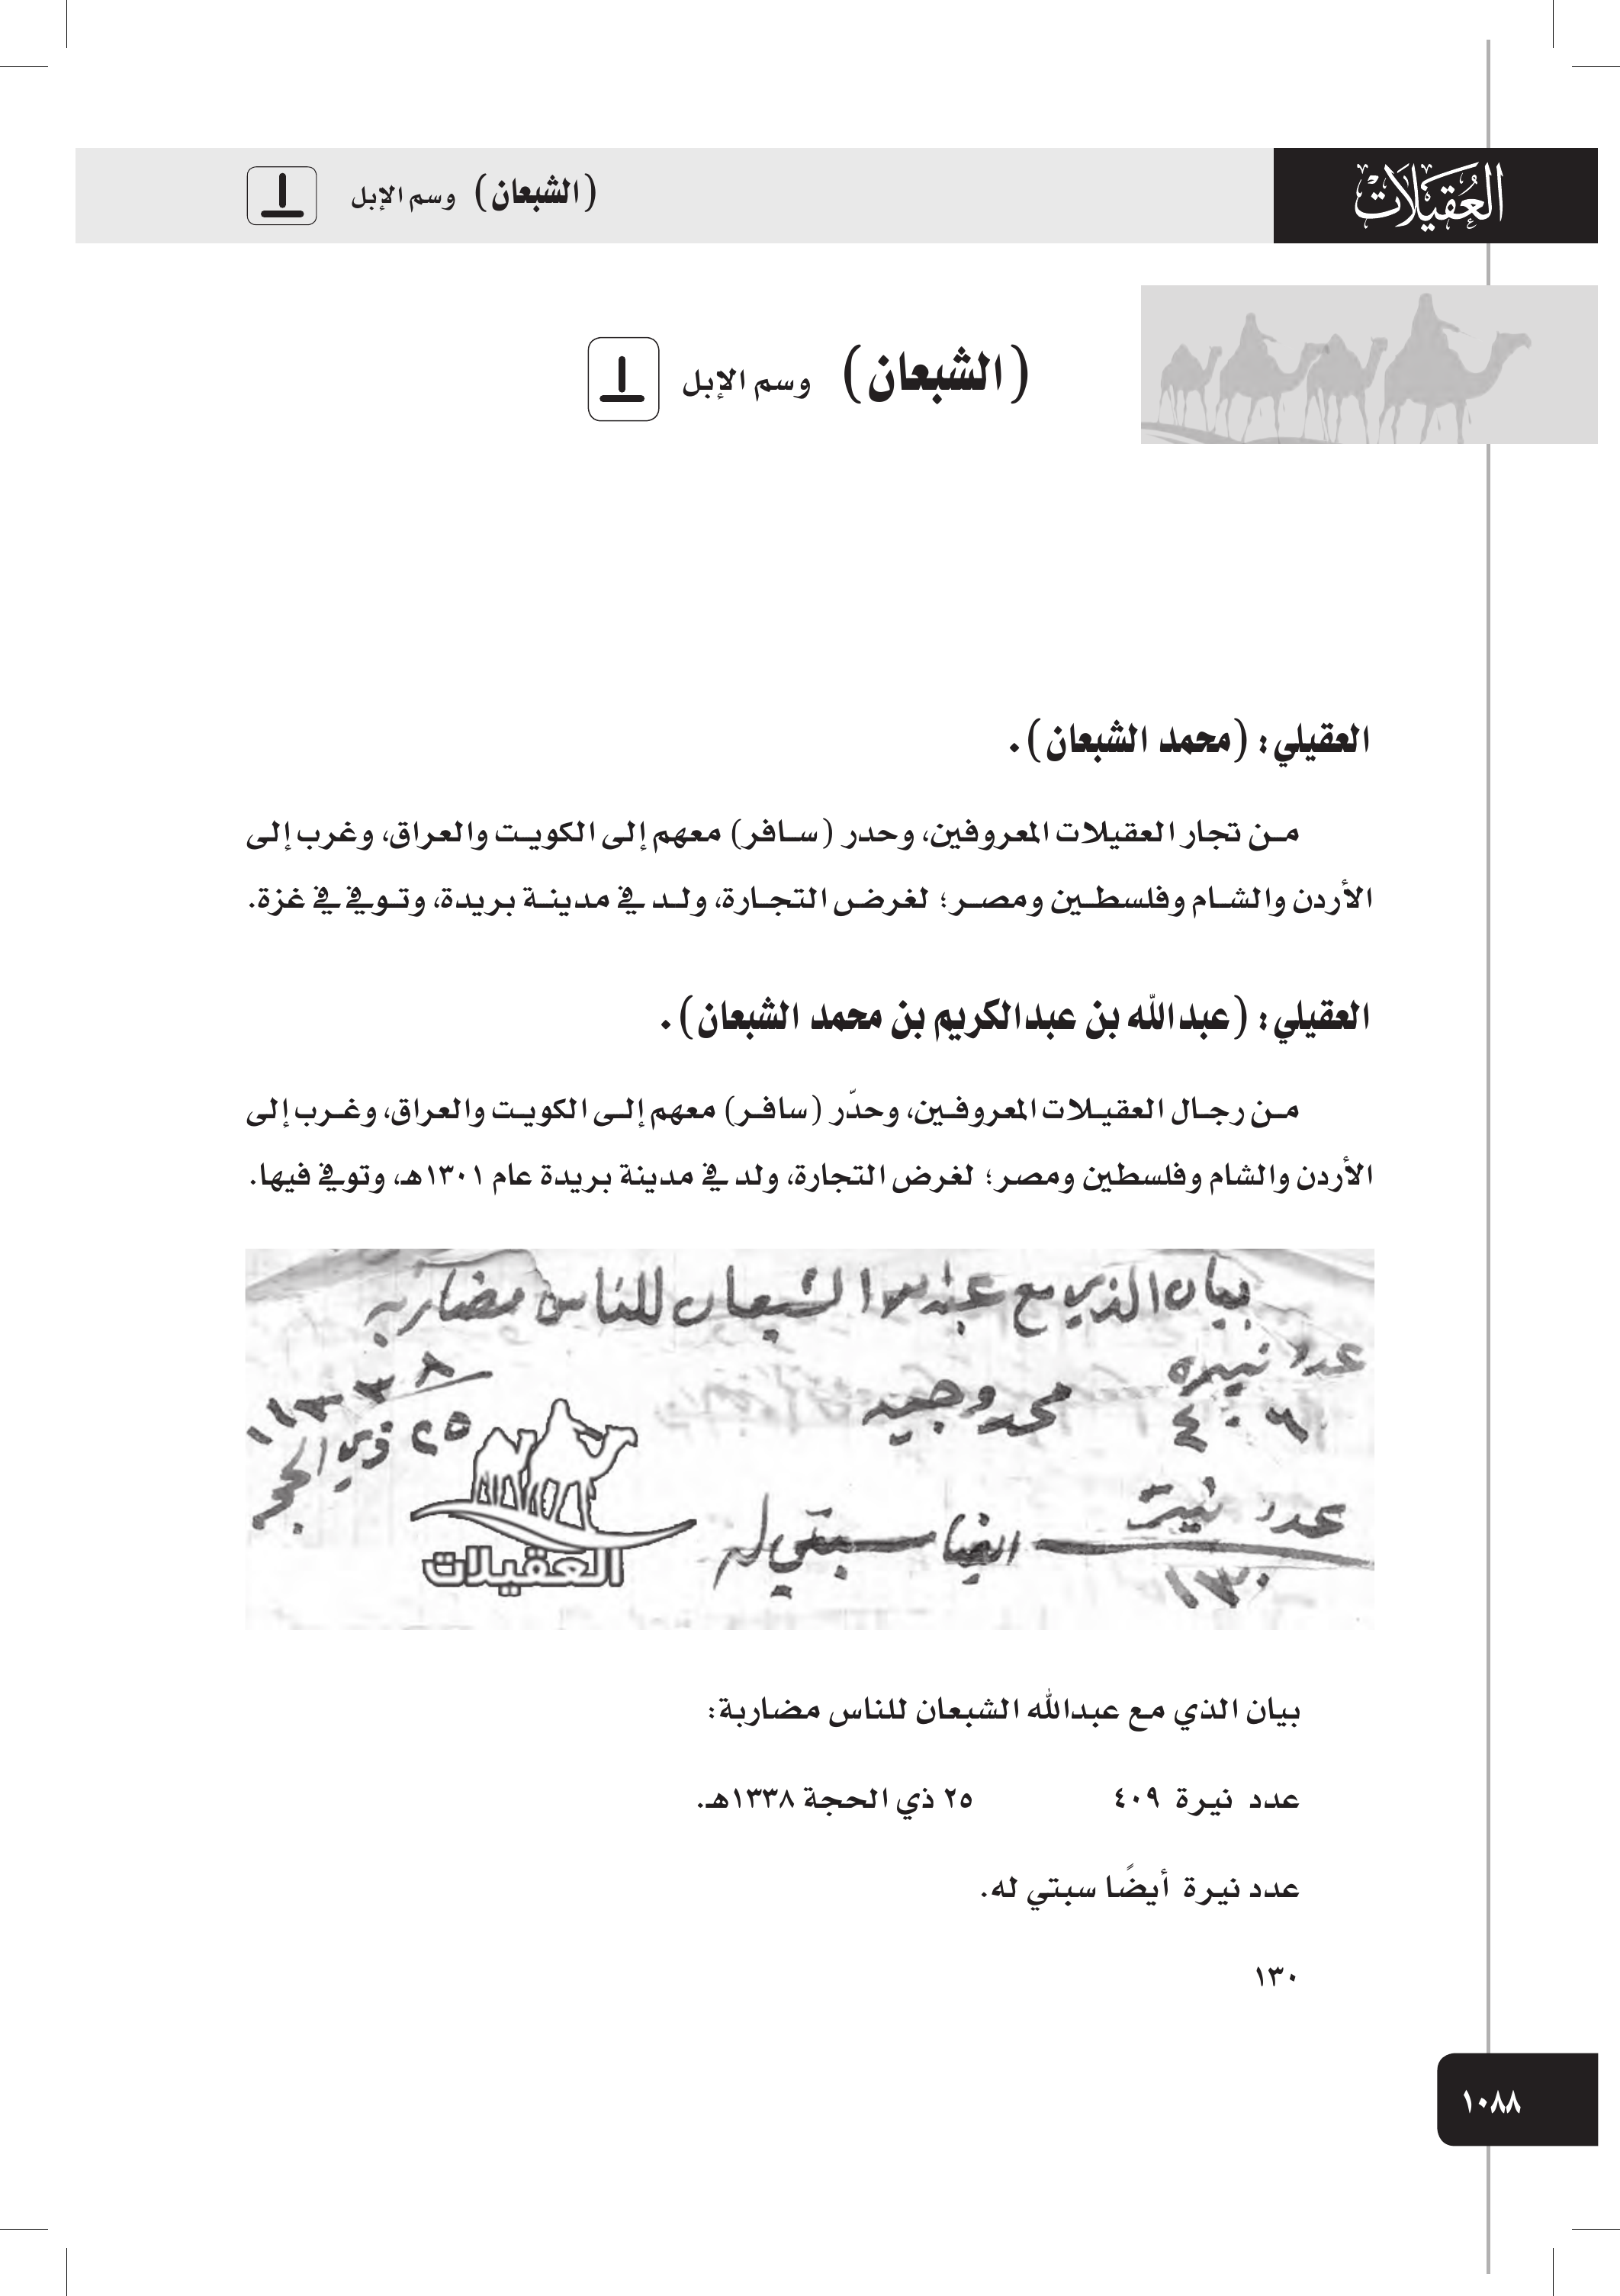 العُقيلات
(الشبعان) وسم الإبل
(الشبعان) وسم الإبل
العقيلي: (محمد الشبعان).
من تجار العقيلات المعروفين، وحدر (سافر) معهم إلى الكويت والعراق، وغرب إلى
الأردن والشام وفلسطين ومصر؛ لغرض التجارة، ولد في مدينة بريدة، وتوفي في غزة.
العقيلي: (عبدالله بن عبدالكريم بن محمد الشبعان).
من رجال العقيلات المعروفين، وحدّر (سافر) معهم إلى الكويت والعراق، وغرب إلى
الأردن والشام وفلسطين ومصر؛ لغرض التجارة، ولد في مدينة بريدة عام ١٣٠١هـ، وتوفي فيها.
بيان الذي مع عبدالله الشبعان للناس مضاربه
عدد نيره
٤٠٩ محمد وجيه
١٣٣٨
٢٥ ذي الحجه
عدد نيرة ايضا سبتي له
١٣٠
العقيلات
بيان الذي مع عبدالله الشبعان للناس مضاربة:
عدد نيرة ٤٠٩ ٢٥ ذي الحجة ١٣٣٨هـ.
عدد نيرة أيضًا سبتي له.
١٣٠
١٠٨٨